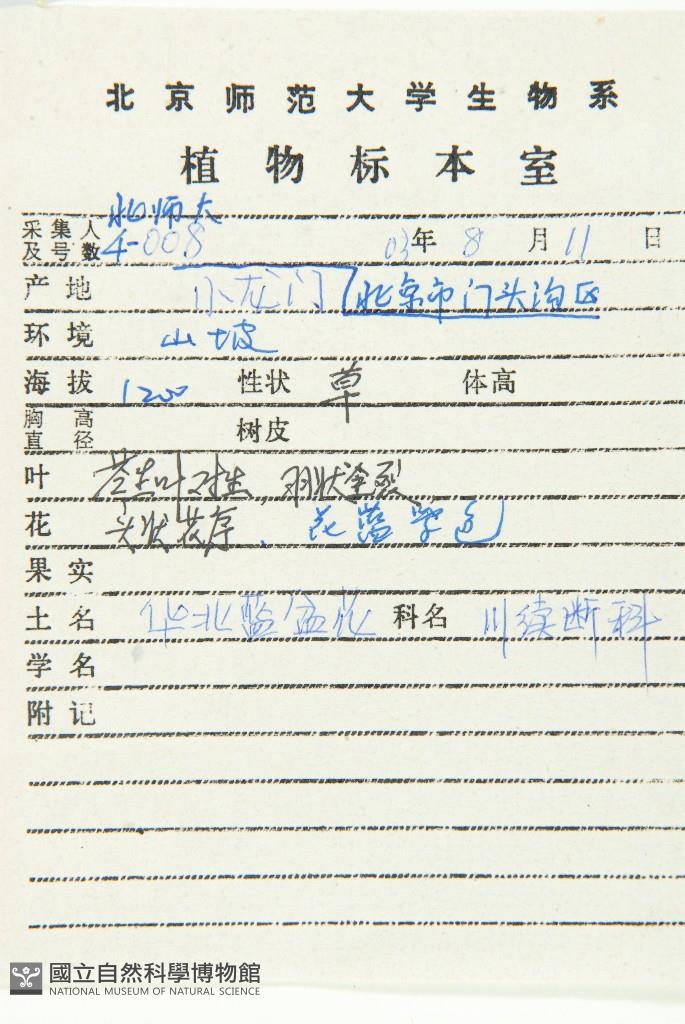 北京师范大学生物系
植物标本室
北师大
采集人
及号数 4-008 03年 8 月 11 日
产地 小龙门 北京市门头沟区
环境 山坡
海拔 1200 性状 草 体高
胸高
直径 树皮
叶 茎生叶对生,羽状深裂
花 头状花序、花蓝紫色
果实
土名 华北蓝盆花 科名 川续断科
学名
附记
國立自然科學博物館
NATIONAL MUSEUM OF NATURAL SCIENCE